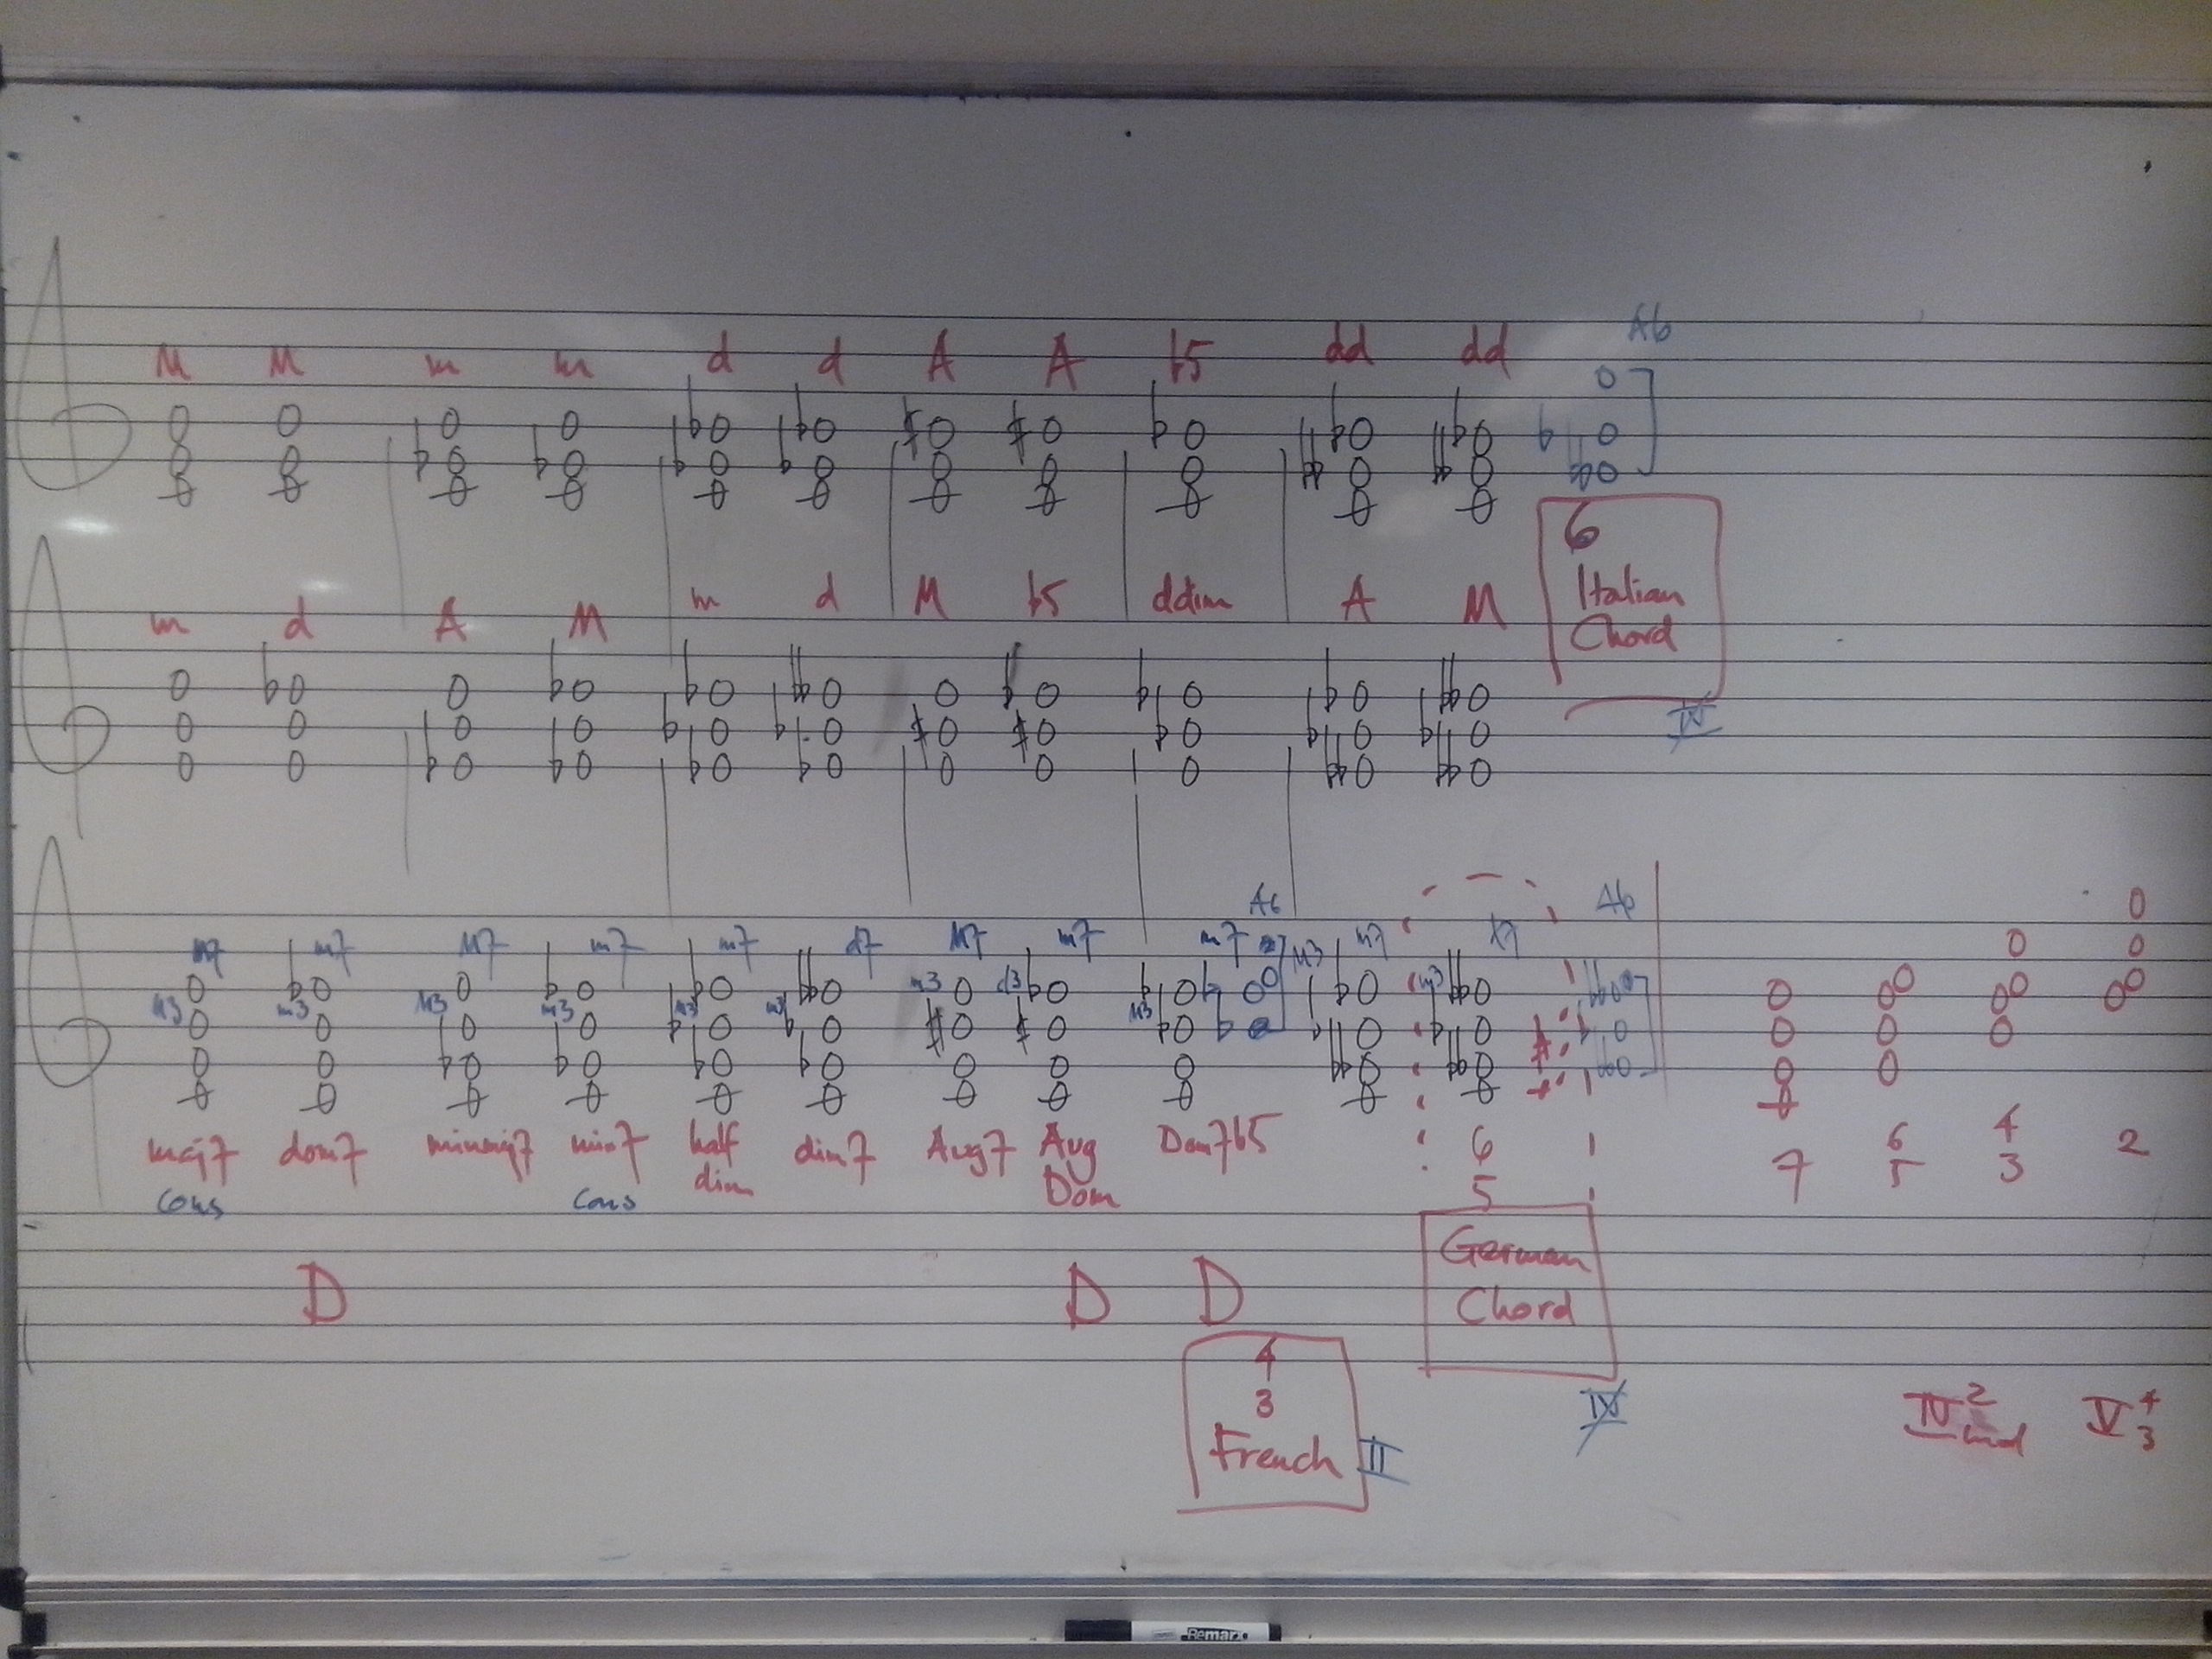 M M m m d d A A b5 dd dd A6
m d A M m d M b5 ddim A M
6
Italian
Chord
IV
A6 A6
M7 m7 M7 m7 m7 d7 M7 m7 m7 M3 m7
M3 m3 M3 m3 M3 m3 d3 M3 m3
maj7 dom7 minmaj7 min7 half dim dim7 Aug7 Aug Dom Dom7b5
cons cons
6
5
German
Chord
IV
7 6 5 4 3 2
D D D
4
3
French II
IV2 V4 3
Remarx